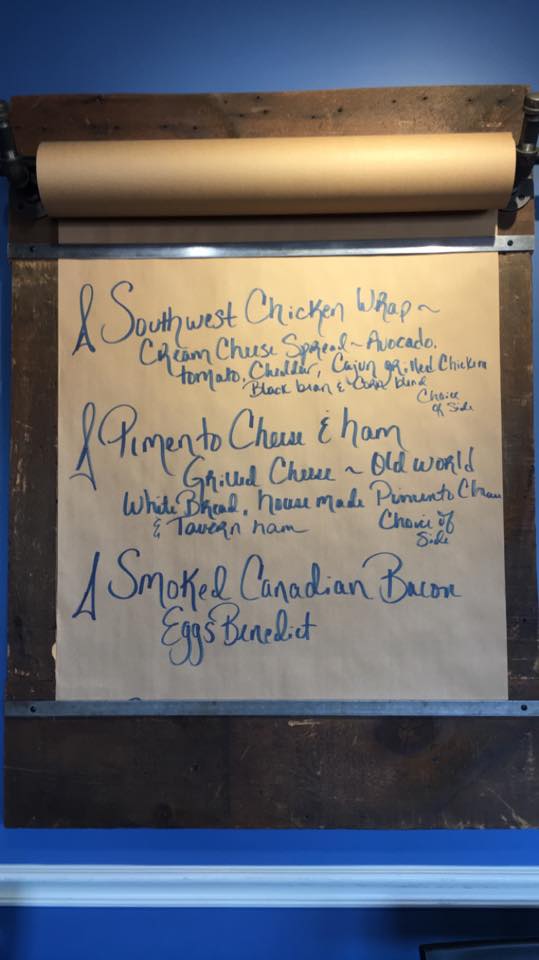 Southwest Chicken Wrap ~
Cream Cheese Spread ~ Avocado,
tomato, Cheddar, Cajun grilled Chicken
Black bean & Corn blend
Choice
of Side
Pimento Cheese & ham
Grilled Cheese ~ Old World
White Bread, house made Pimento Cheese
& Tavern ham
Choice of
Side
Smoked Canadian Bacon
Eggs Benedict